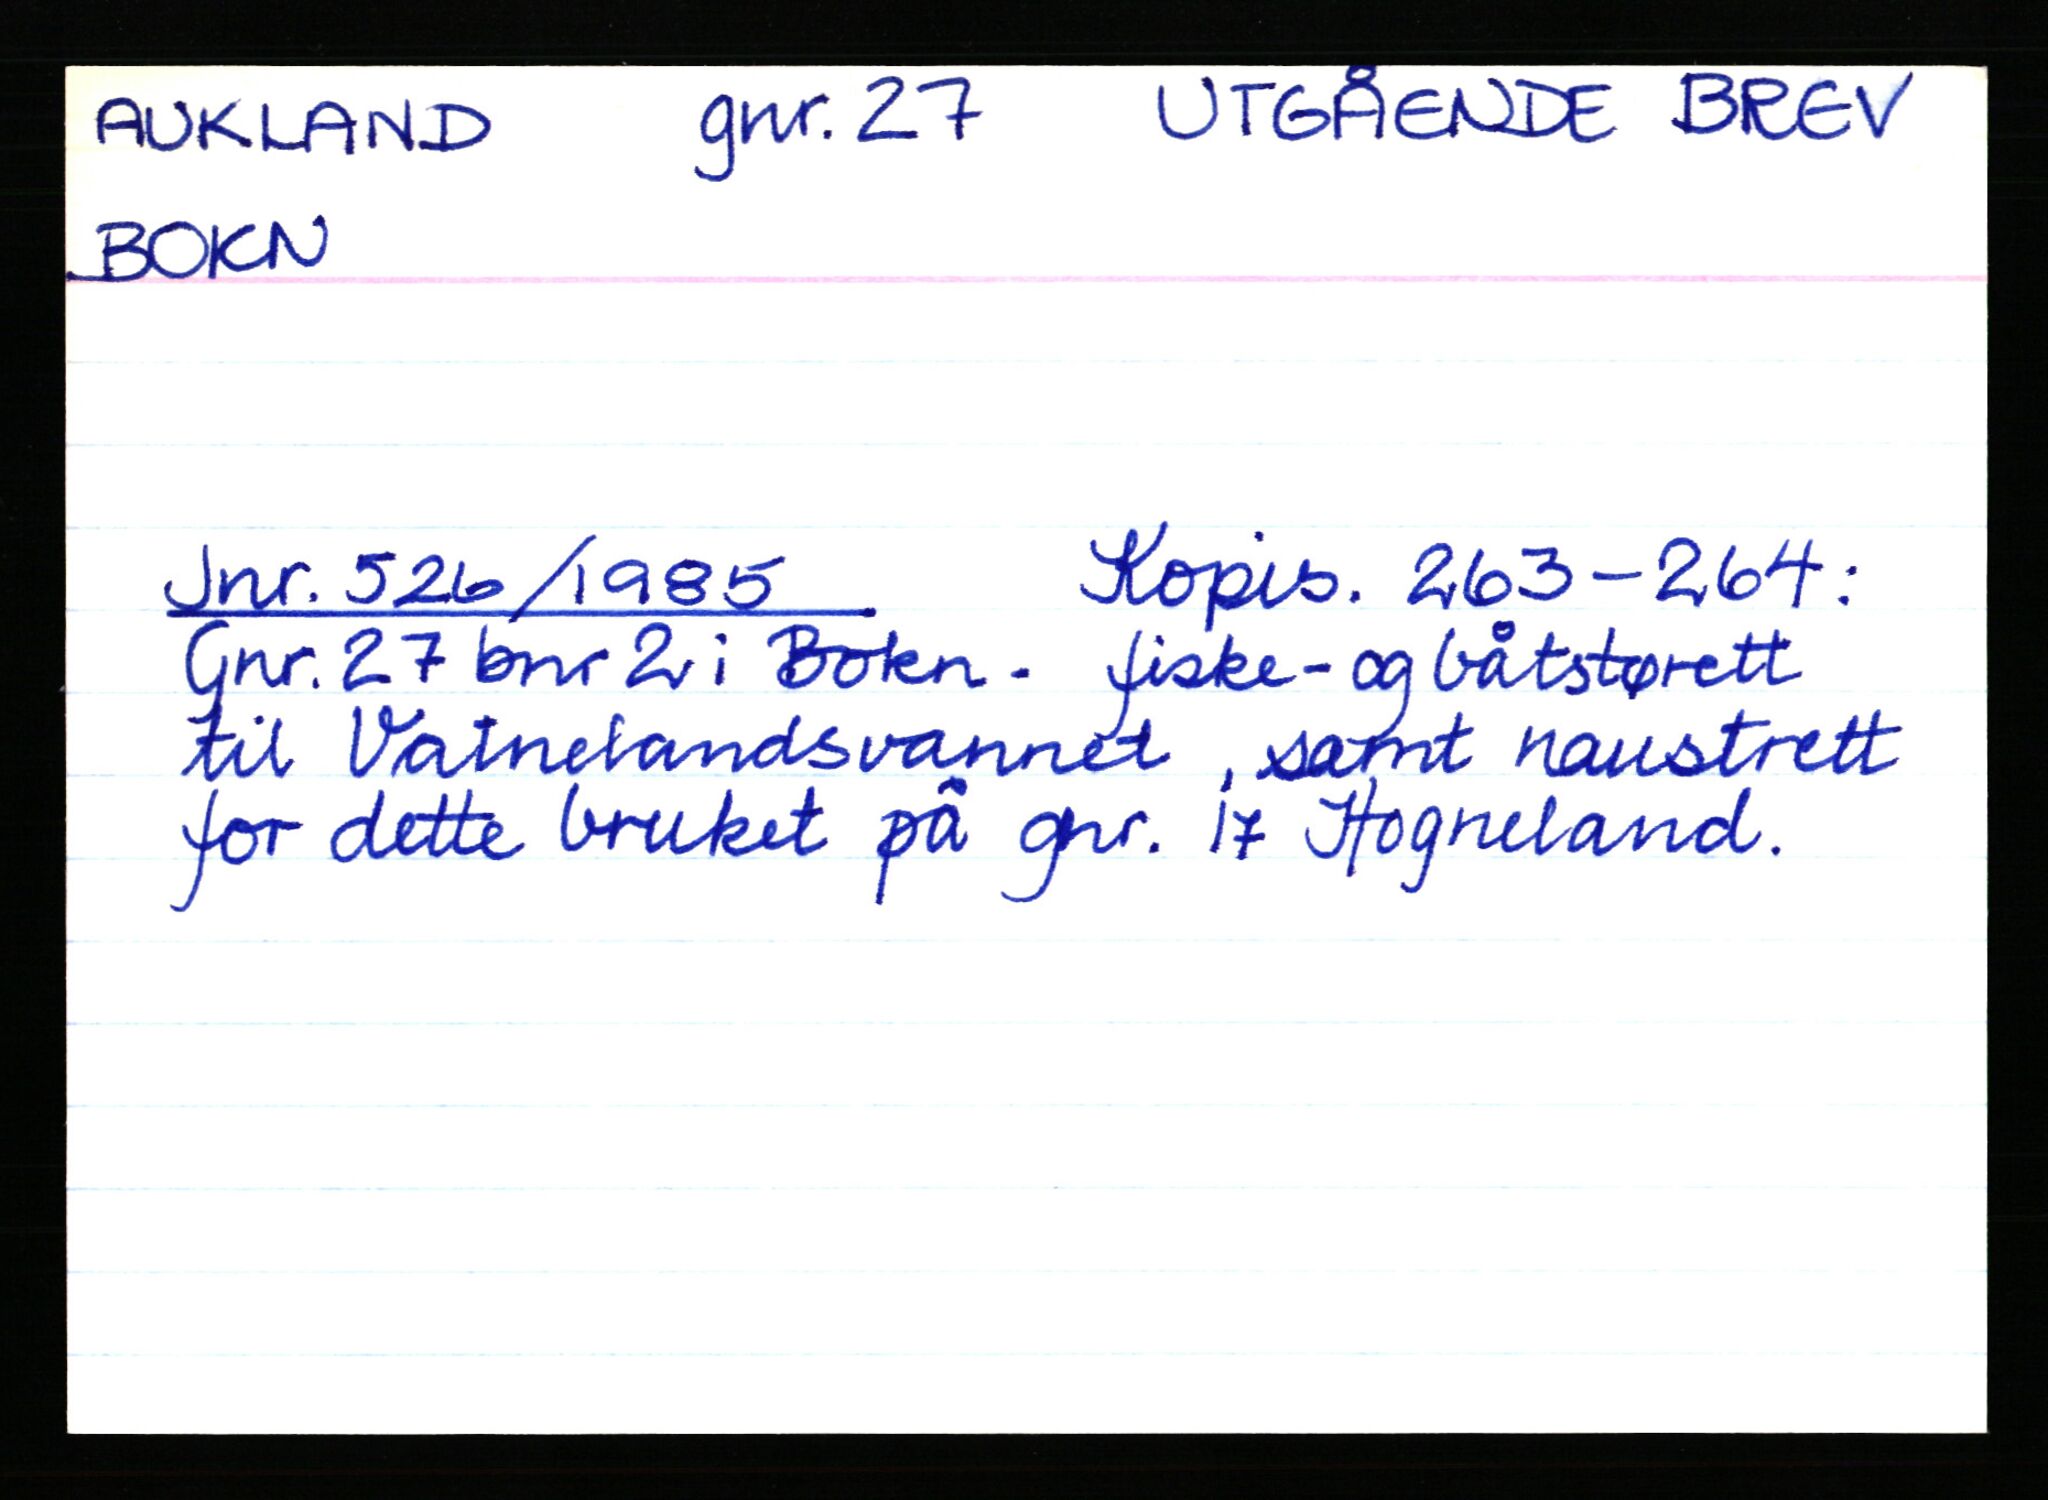 AUKLAND gnr. 27 UTGÅENDE BREV
BOKN
Jnr. 526/1985 Kopis. 263-264:
Gnr. 27 bnr 2 i Bokn. fiske- og båtstørett
til Vatnelandsvannet, samt naustrett
for dette bruket på gnr. 17 Hogneland.